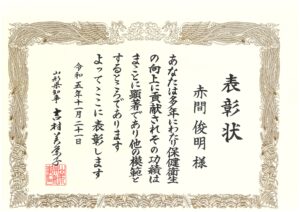 表彰状
赤間 俊明 様
あなたは多年にわたり保健衛生
の向上に貢献されその功績は
まことに顕著であり他の模範と
するところであります
よってここに表彰します
令和五年十一月二十一日
山形県知事 吉村美栄子